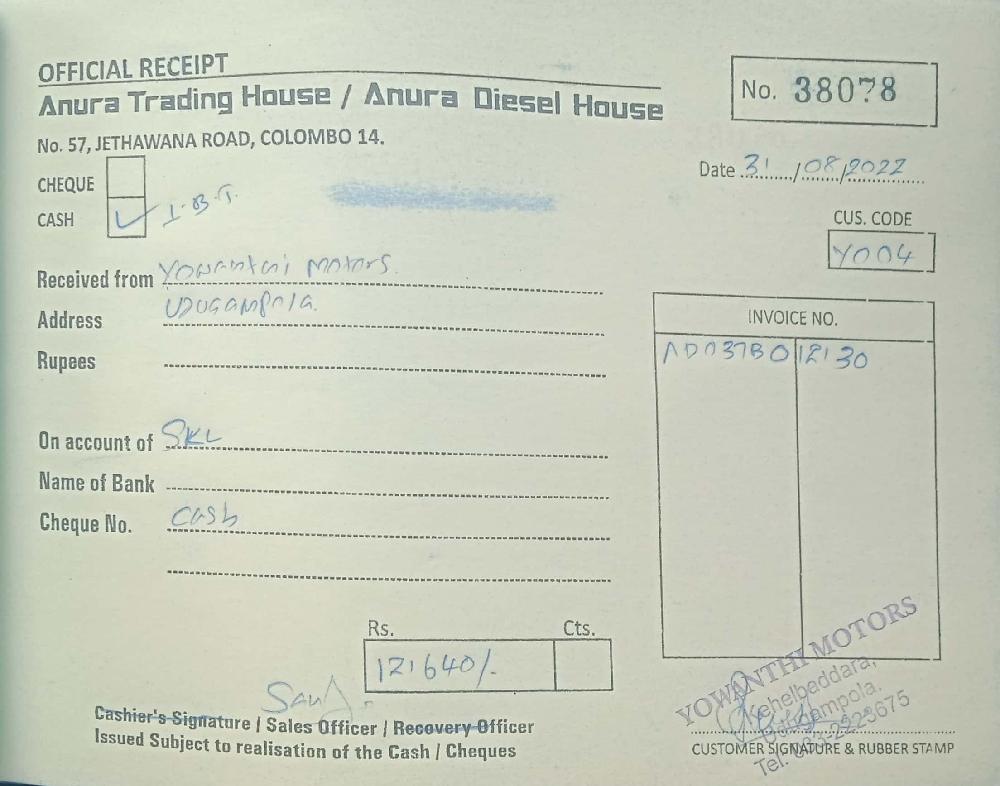 OFFICIAL RECEIPT
Anura Trading House / Anura Diesel House
No. 57, JETHAWANA ROAD, COLOMBO 14.
No. 38078
Date 31/08/2022
CHEQUE
CASH ✓ I.B.T.
CUS. CODE
Y004
Received from Yowanthi Motors.
Address Udugampola.
Rupees
INVOICE NO.
On account of SKL
Name of Bank
Cheque No. Cash
Rs. Cts.
12'640/-
Cashier's Signature / Sales Officer / Recovery Officer
Issued Subject to realisation of the Cash / Cheques
YOWANTHI MOTORS
Kehelbaddara,
Udugampola.
CUSTOMER SIGNATURE & RUBBER STAMP